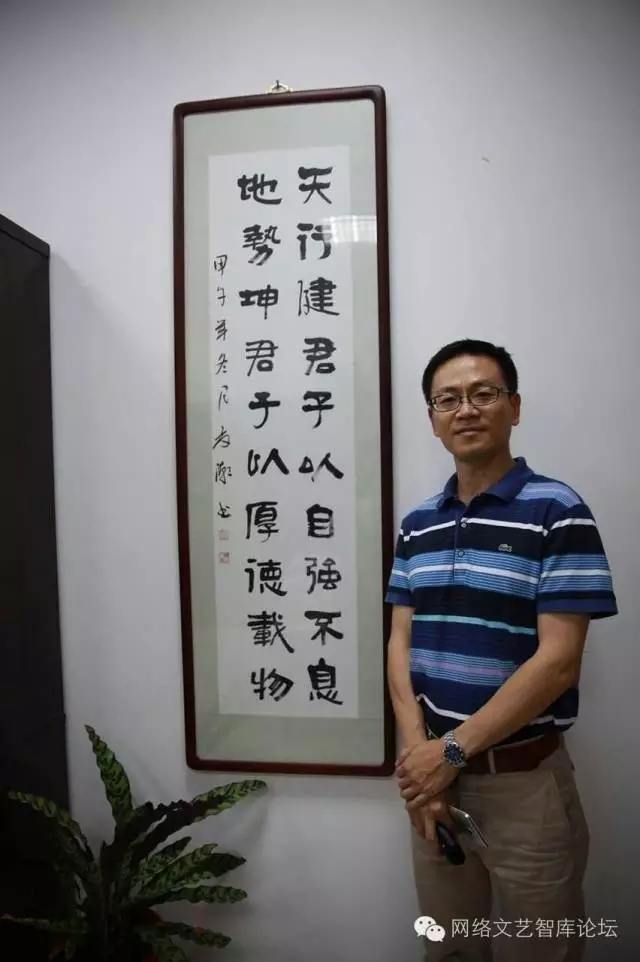 天行健君子以自强不息
地勢坤君子以厚德載物
甲午年冬月
书
网络文艺智库论坛